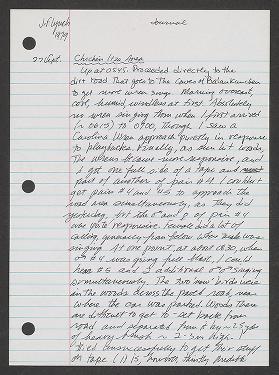 J.F. Lynch
1979
Journal
27 Sept. Chichen Itza Area
Up at 0545. Proceeded directly to the
dirt road that goes to the Caves at Balankanchen
to get more wren songs. Morning overcast,
cool, humid, windless at first. Absolutely
no wren singing when I first arrived
(~ 0615) to 0700, though I saw a
Carolina Wren approach quietly in response
to playbacks. Finally, as sun hit woods,
the wrens became more responsive, and
I got one full side of a tape and
part of another of pair #1. I couldn't
get pairs 4 and 5 to approach the
road area simultaneously, as they did
yesterday, but the ♂ and ♀ of pair #4
was quite responsive. Female did a lot of
calling, generally from below where male was
singing. At one point, at about 0830, when
♂ #4 was going full blast, I could
hear #5 and 2 additional ♂♂ singing
simultaneously. The two new birds were in
the woods across the paved road, near
where the car was parked. Woods there
are difficult to get to - set back from
road and separated from it by ~25 yds
of heavy brush ~ 2-3 m high.
I tried unsuccessfully to get
on tape (1)